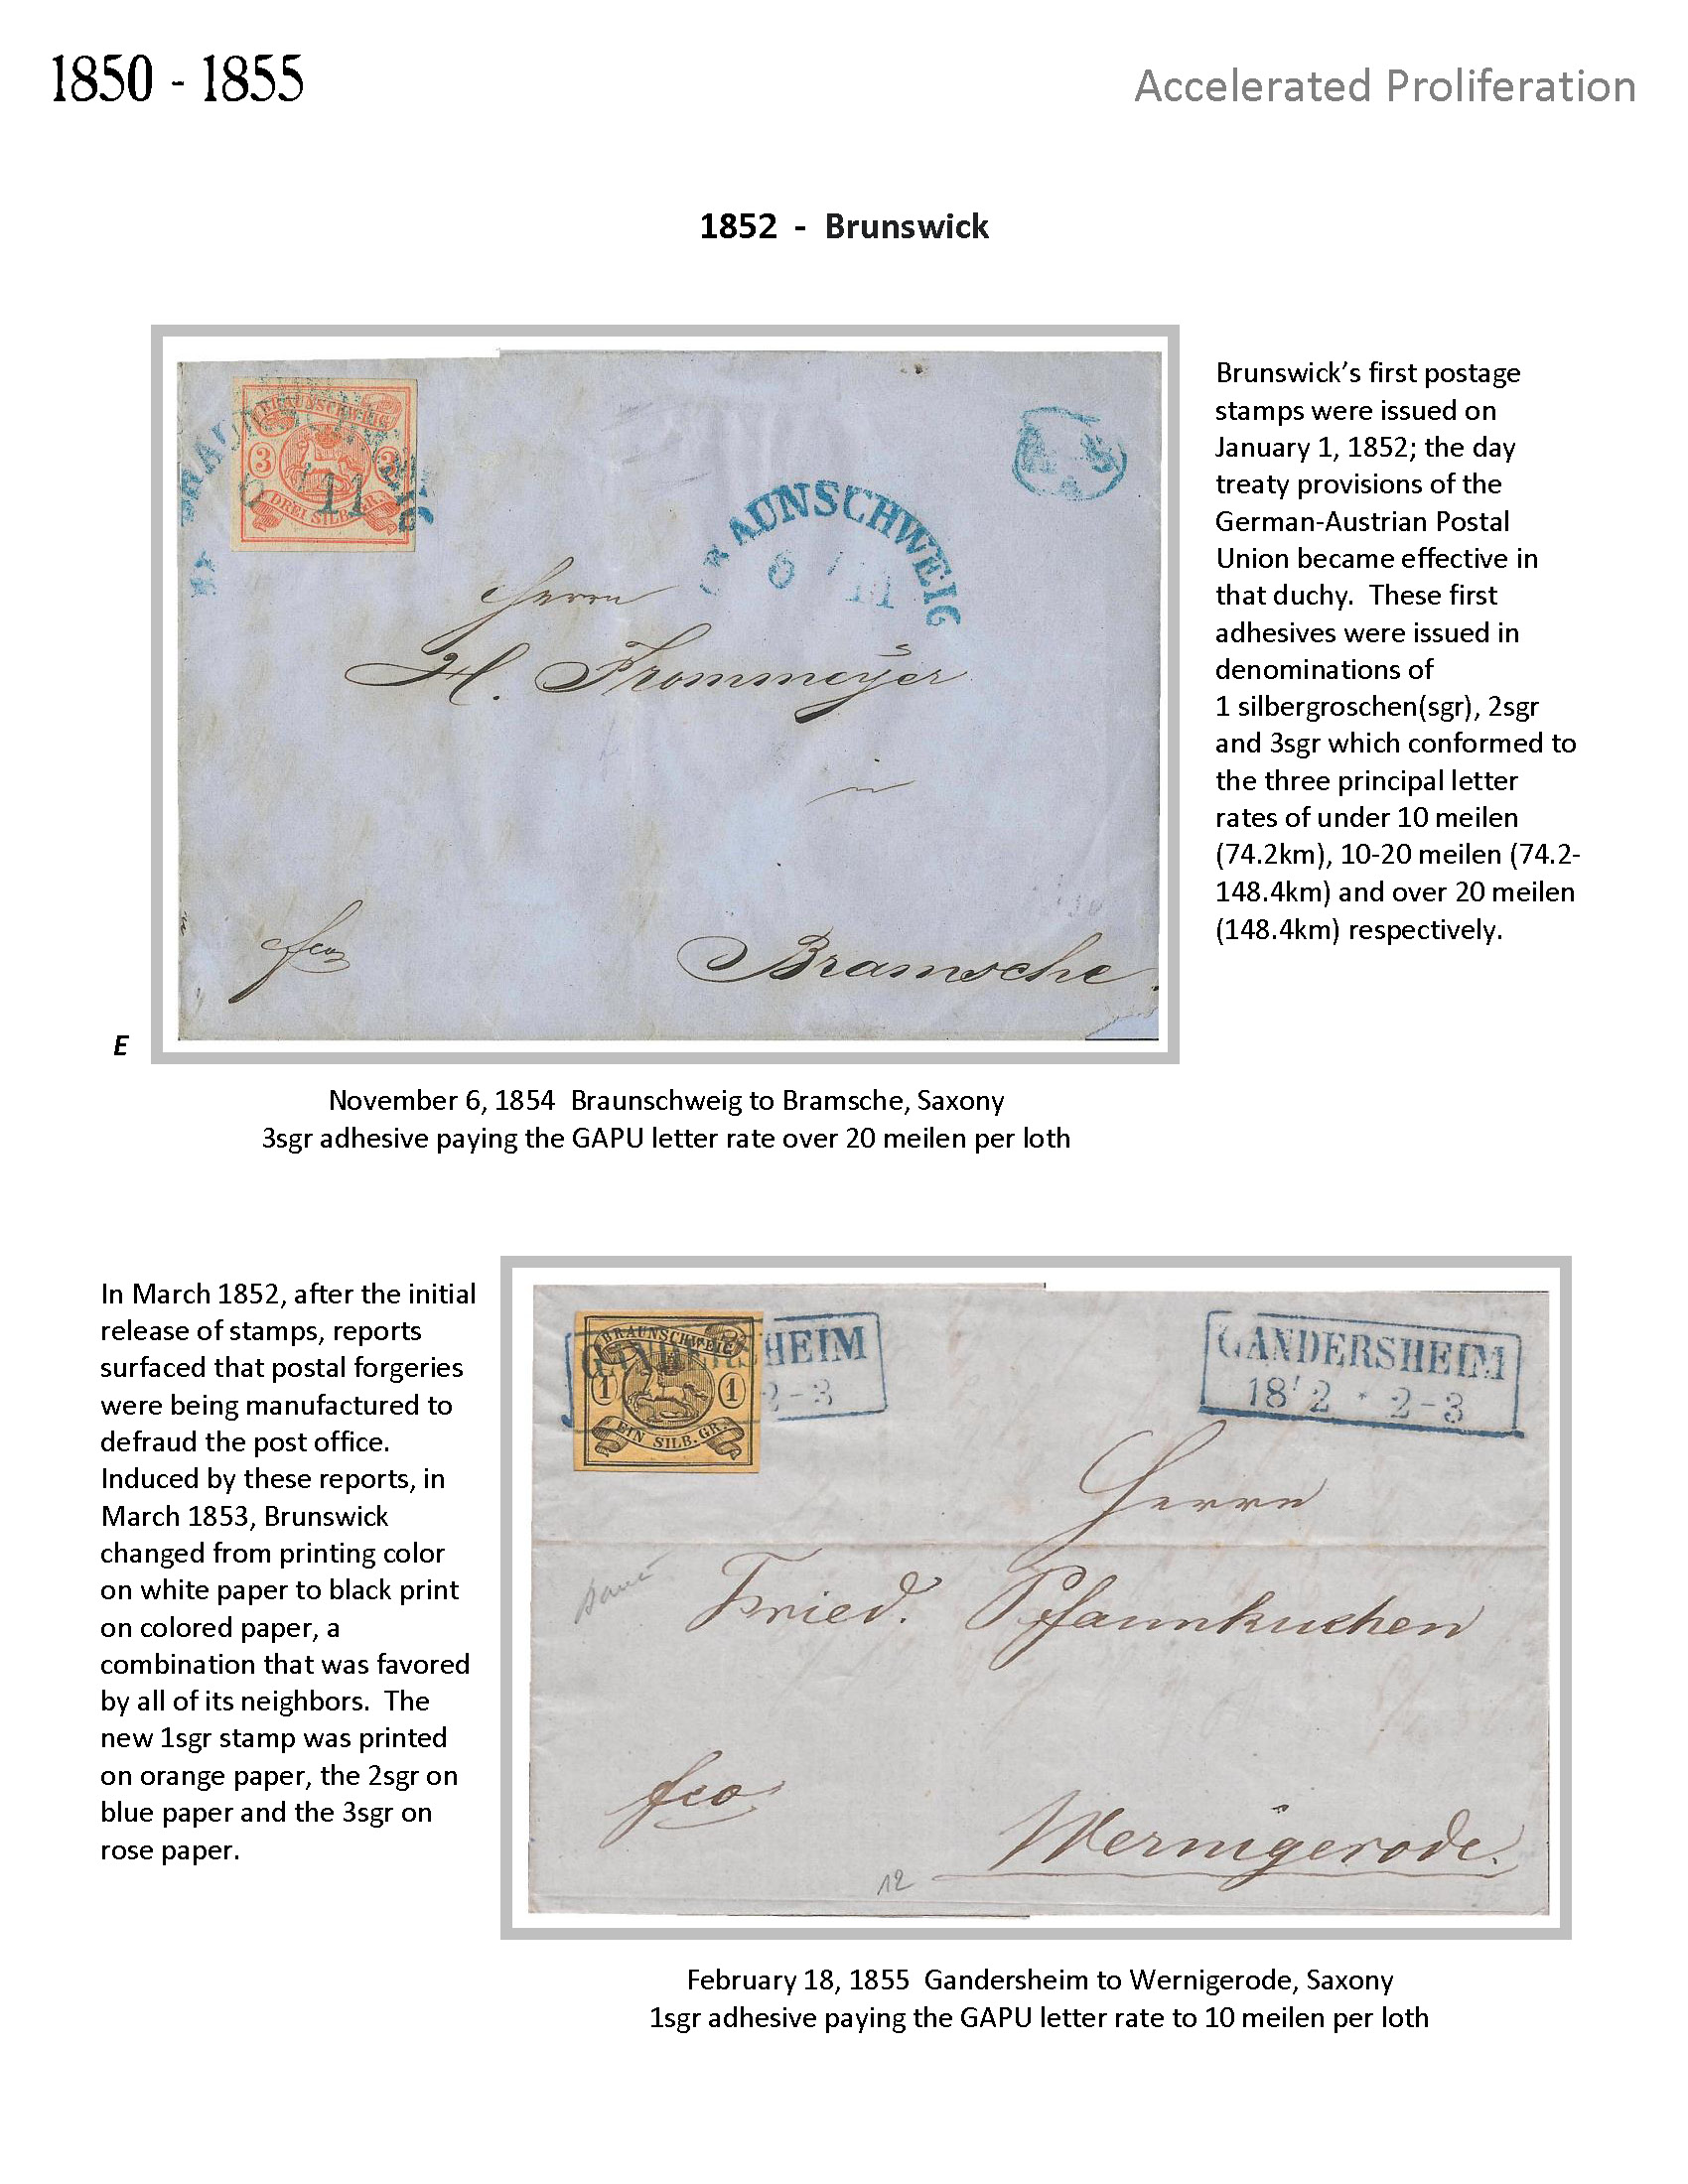 1850 - 1855
Accelerated Proliferation
1852 - Brunswick
BRAUNSCHWEIG
3 3
DREI SILB. GR.
6 11
BRAUNSCHWEIG
6 11
Herrn
H. Frommeyer
in
fco
Bramsche.
Brunswick's first postage
stamps were issued on
January 1, 1852; the day
treaty provisions of the
German-Austrian Postal
Union became effective in
that duchy. These first
adhesives were issued in
denominations of
1 silbergroschen(sgr), 2sgr
and 3sgr which conformed to
the three principal letter
rates of under 10 meilen
(74.2km), 10-20 meilen (74.2-
148.4km) and over 20 meilen
(148.4km) respectively.
E
November 6, 1854 Braunschweig to Bramsche, Saxony
3sgr adhesive paying the GAPU letter rate over 20 meilen per loth
In March 1852, after the initial
release of stamps, reports
surfaced that postal forgeries
were being manufactured to
defraud the post office.
Induced by these reports, in
March 1853, Brunswick
changed from printing color
on white paper to black print
on colored paper, a
combination that was favored
by all of its neighbors. The
new 1sgr stamp was printed
on orange paper, the 2sgr on
blue paper and the 3sgr on
rose paper.
BRAUNSCHWEIG
1 1
EIN SILB. GR.
GANDERSHEIM
2-3
GANDERSHEIM
18/2 * 2-3
Herrn
Fried. Pfannkuchen
fco
Wernigerode.
12
February 18, 1855 Gandersheim to Wernigerode, Saxony
1sgr adhesive paying the GAPU letter rate to 10 meilen per loth